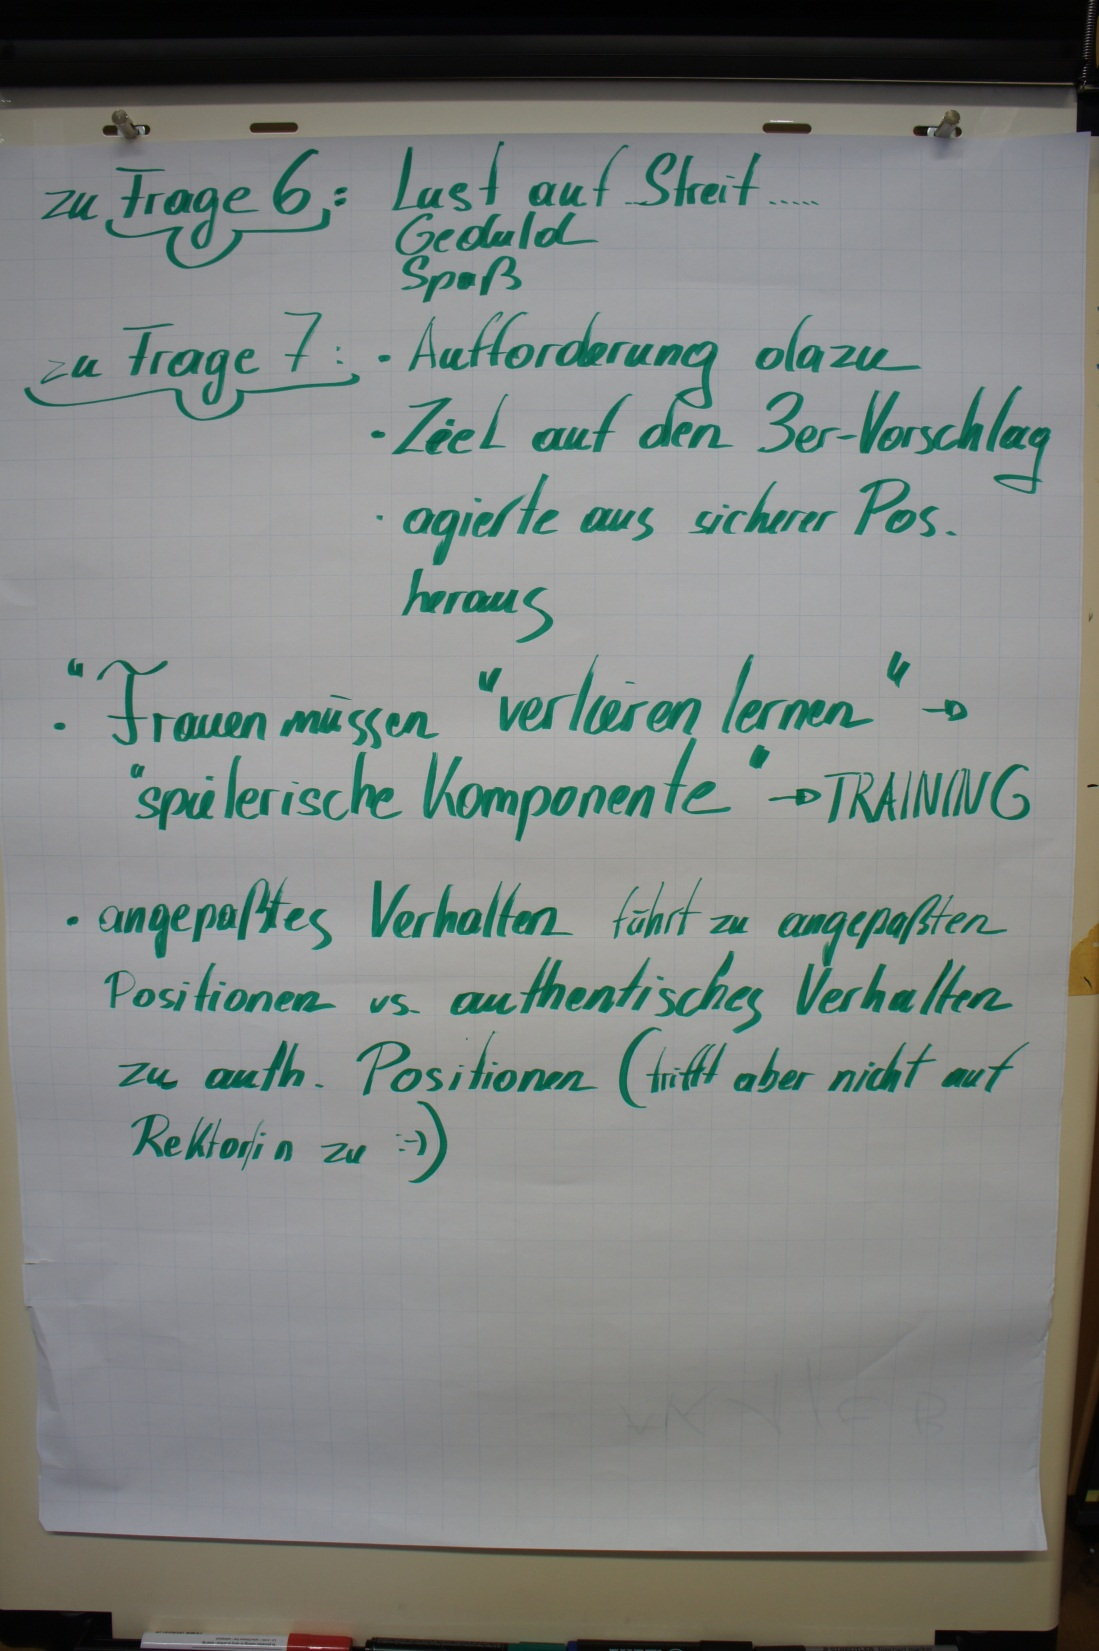 zu Frage 6: Lust auf Streit.....
Geduld
Spaß
zu Frage 7: • Aufforderung dazu
• Ziel auf den 3er-Vorschlag
• agierte aus sicherer Pos.
heraus
• "Frauen müssen "verlieren lernen" →
"spielerische Komponente" → TRAINING
• angepaßtes Verhalten führt zu angepaßten
Positionen vs. authentisches Verhalten
zu auth. Positionen (trifft aber nicht auf
Rektor/in zu :-))